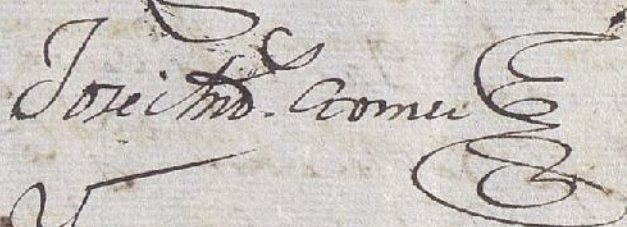 Jose Anto. Gomez